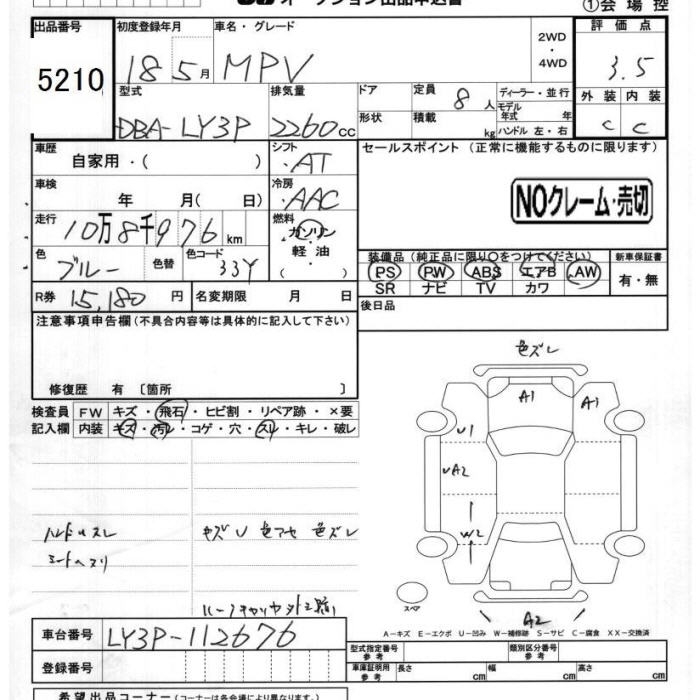 オークション出品申込書 ①会場控
出品番号 初度登録年月 車名・グレード 2WD・4WD 評価点
5210 18 5月 MPV 3.5
型式 排気量 ドア 定員 8人 ディーラー・並行 外装 内装
DBA-LY3P 2260cc 形状 積載 kg モデル年式 年 C C
ハンドル 左・右
車歴 自家用・( ) シフト ・AT セールスポイント (正常に機能するものに限ります)
車検 年 月( 日) 冷房 ・AAC NOクレーム・売切
走行 10万8千976km 燃料 ガソリン・軽油・( )
色 ブルー 色替 色コード 33Y 装備品 (純正品に限り○をつけてください) 新車保証書
PS PW ABS エアB AW 有・無
SR ナビ TV カワ
R券 15,180円 名変期限 月 日 後日品
注意事項申告欄 (不具合内容等は具体的に記入して下さい)
修復歴 有 〔箇所 〕
検査員 FW キズ・飛石・ヒビ割・リペア跡・×要
記入欄 内装 キズ・汚レ・コゲ・穴・スレ・キレ・破レ
色ズレ
A1 A1
U1
UA2
W2
ハンドルスレ キズU 色アセ 色ズレ
シートヘタリ
スペア
A2
A-キズ E-エクボ U-凹み W-補修跡 S-サビ C-腐食 XX-交換済
車台番号 LY3P-112676
登録番号
型式指定番号 参考 類別区分番号 参考
車庫証明用 参考 長さ cm 幅 cm 高さ cm
希望出品コーナー (コーナーは各会場により異なります。)